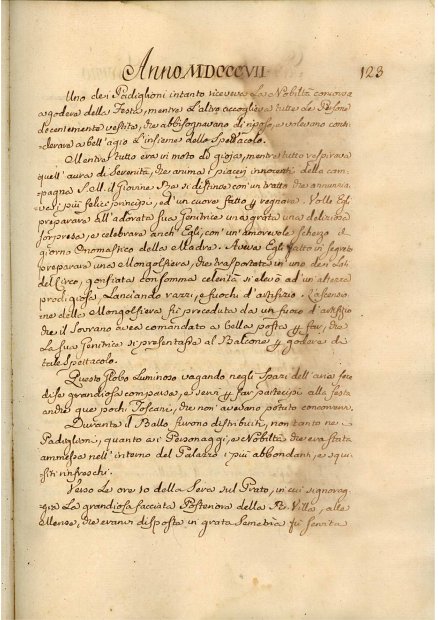 Anno MDCCCVII
123
Uno dei Padiglioni intanto riceveva La Nobiltà concorsa
a godere della Festa, mentre L'altro accoglieva tutte Le Persone
decentemente vestite, che abbisognavano di riposo, e volevano consi-
derare a bell'agio L'insieme dello Spettacolo.
Mentre tutto era in moto di gioja, mentre tutto respirava
quell'aura di Serenità, che anima i piaceri innocenti della cam-
pagna S. M. il Giovine Re si distinse con un tratto che annunzia-
va i più felici principj, ed un cuore fatto p regnare. Volle Egli
preparare all'adorata sua Genitrice una grata una deliziosa
sorpresa, e celebrare anch'Egli, con un'amorevole scherzo il
giorno Onomastico della Madre. Aveva Egli fatto in segreto
preparare una Mongolfiera, che trasportata in uno dei lati
del Circo, gonfiata con somma celerità si elevò ad un'altezza
prodigiosa, Lanciando razzi, e fuochi d'artifizio. L'ascensio-
ne della Mongolfiera fù preceduta da un fuoco d'artifizio
che il Sovrano avea comandato a bella posta p far, che
La sua Genitrice si presentasse al Balcone p godere da
tale Spettacolo.
Questo Globo Luminoso vagando negli Spazi dell'aria fece
di se grandiosa comparsa, e servì p far partecipi alla festa
anche que pochi Toscani, che non avevano potuto concorrervi.
Durante il Ballo furono distribuiti, non tanto ne
Padiglioni, quanto ai Personaggi, e Nobiltà che era stata
ammessa nell'interno del Palazzo i più abbondanti, e squi-
siti rinfreschi.
Verso Le ore 10 della Sera sul Prato, in cui signoreg-
gia La grandiosa facciata Posteriore della R. Villa, alle
che eransi disposte in grata Semetria fù servita